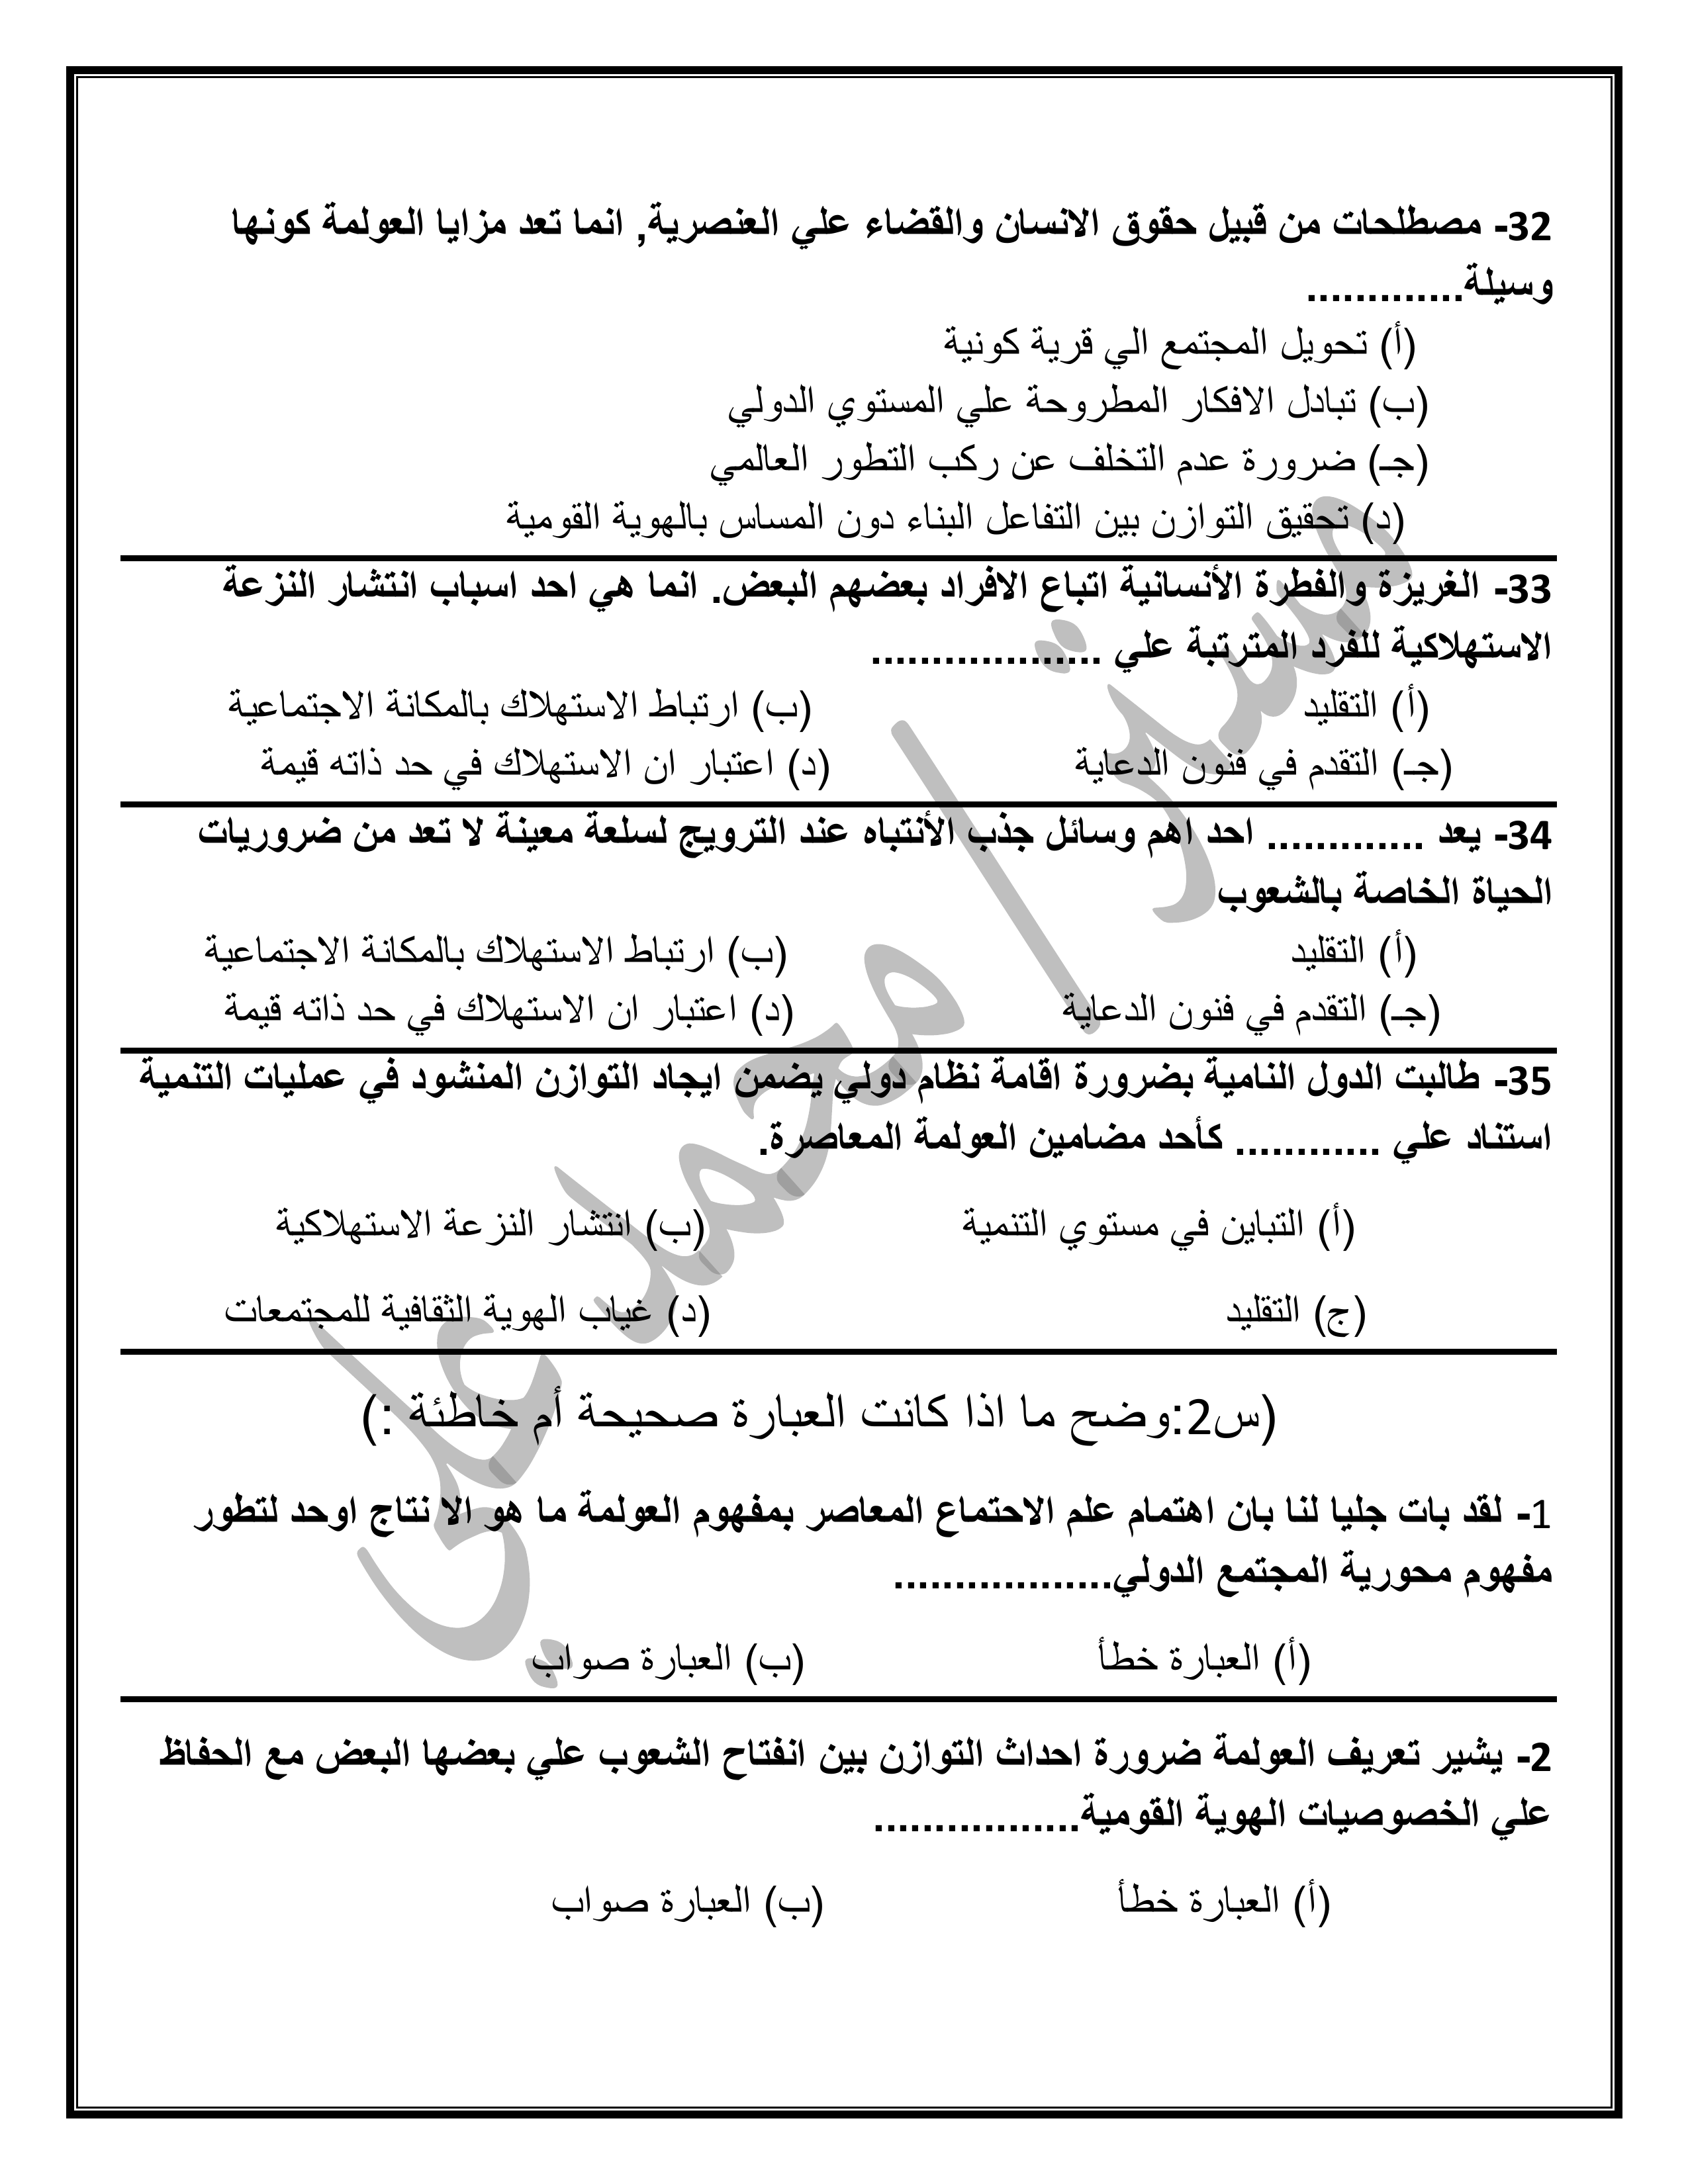 32- مصطلحات من قبيل حقوق الانسان والقضاء علي العنصرية, انما تعد مزايا العولمة كونها
وسيلة.............
(أ) تحويل المجتمع الي قرية كونية
(ب) تبادل الافكار المطروحة علي المستوي الدولي
(جـ) ضرورة عدم التخلف عن ركب التطور العالمي
(د) تحقيق التوازن بين التفاعل البناء دون المساس بالهوية القومية
33- الغريزة والفطرة الأنسانية اتباع الافراد بعضهم البعض. انما هي احد اسباب انتشار النزعة
الاستهلاكية للفرد المترتبة علي ...................
(أ) التقليد (ب) ارتباط الاستهلاك بالمكانة الاجتماعية
(جـ) التقدم في فنون الدعاية (د) اعتبار ان الاستهلاك في حد ذاته قيمة
34- يعد ............. احد اهم وسائل جذب الأنتباه عند الترويج لسلعة معينة لا تعد من ضروريات
الحياة الخاصة بالشعوب
(أ) التقليد (ب) ارتباط الاستهلاك بالمكانة الاجتماعية
(جـ) التقدم في فنون الدعاية (د) اعتبار ان الاستهلاك في حد ذاته قيمة
35- طالبت الدول النامية بضرورة اقامة نظام دولي يضمن ايجاد التوازن المنشود في عمليات التنمية
استناد علي ............ كأحد مضامين العولمة المعاصرة.
(أ) التباين في مستوي التنمية (ب) انتشار النزعة الاستهلاكية
(ج) التقليد (د) غياب الهوية الثقافية للمجتمعات
(س2:وضح ما اذا كانت العبارة صحيحة أم خاطئة :)
1- لقد بات جليا لنا بان اهتمام علم الاحتماع المعاصر بمفهوم العولمة ما هو الا نتاج اوحد لتطور
مفهوم محورية المجتمع الدولي..................
(أ) العبارة خطأ (ب) العبارة صواب
2- يشير تعريف العولمة ضرورة احداث التوازن بين انفتاح الشعوب علي بعضها البعض مع الحفاظ
علي الخصوصيات الهوية القومية.................
(أ) العبارة خطأ (ب) العبارة صواب
مستر/محمد علي